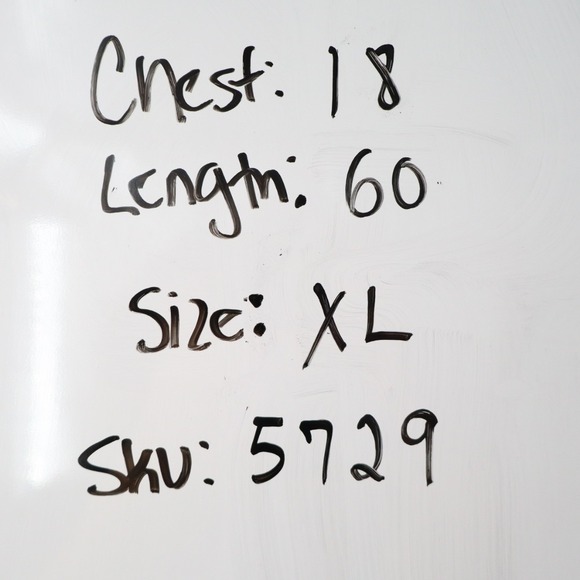 Chest: 18
Length: 60
Size: XL
Sku: 5729